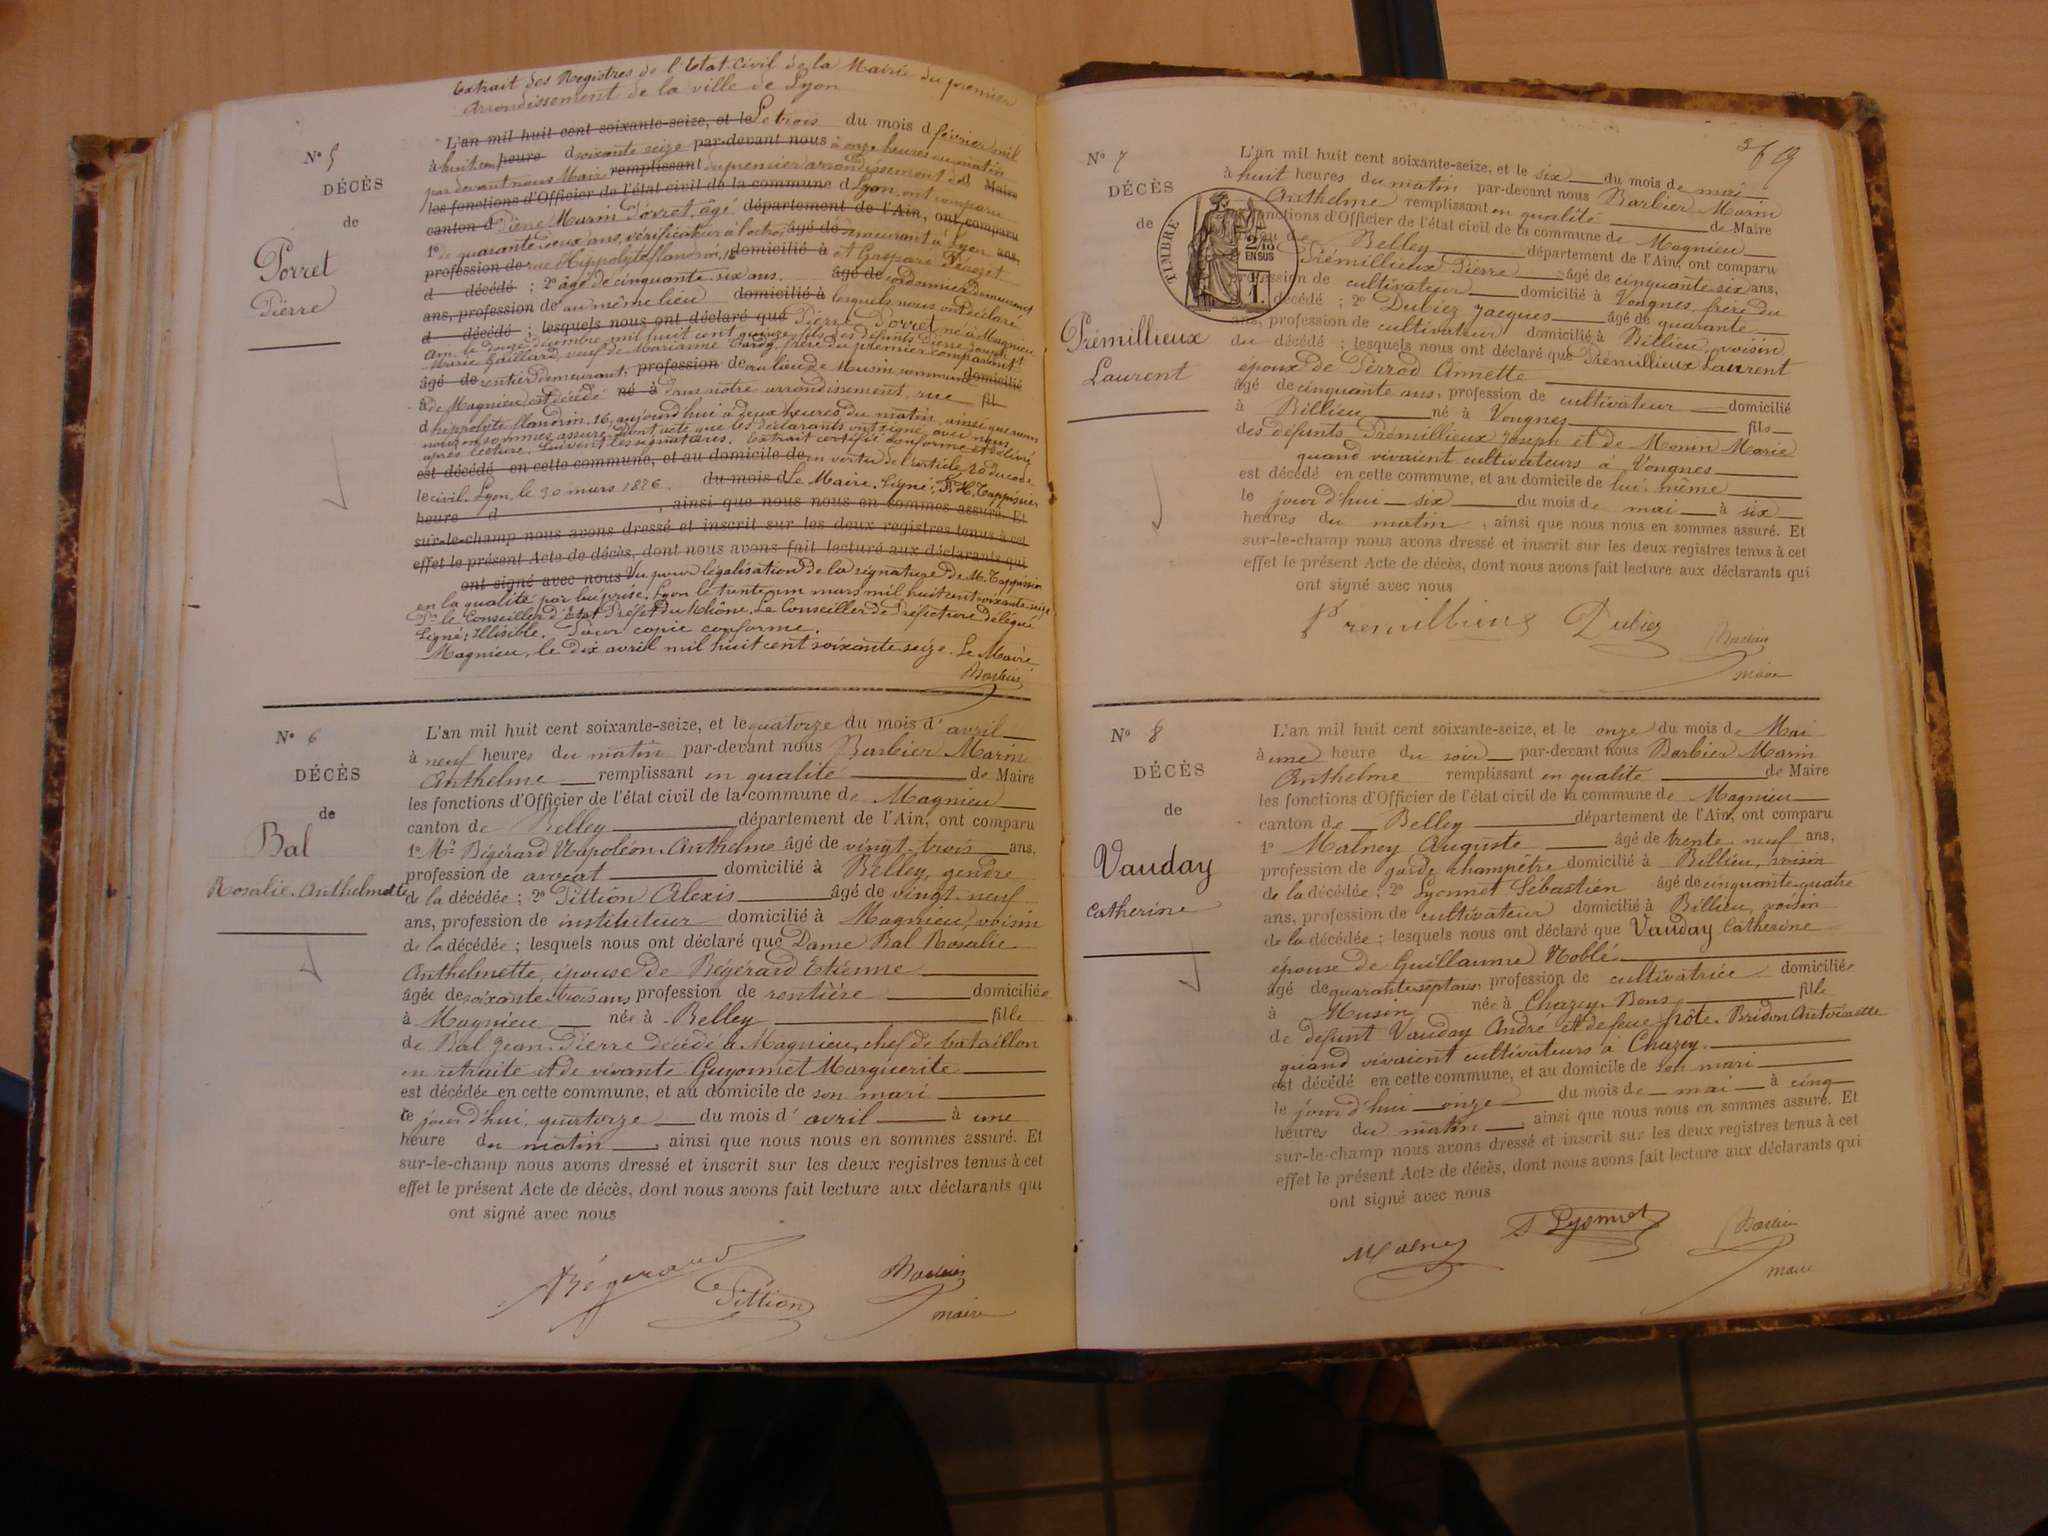 Extrait des Registres de l'Etat-Civil de la Mairie du premier
Arrondissement de la ville de Lyon
N° 5
DÉCÈS
de
Porret
Pierre
L'an mil huit cent soixante-seize, et le Le trois du mois d février mil
à huit cent heure d soixante seize par-devant nous à onze heures du matin
par devant nous Maire remplissant du premier arrondissement de d Maire
les fonctions d'Officier de l'état civil de la commune d Lyon, ont comparu
canton d Pierre Marin Porret, âgé département de l'Ain, ont comparu
1° de quarante deux ans, vérificateur à l'octroi, âgé de demeurant à Lyon ans,
profession de rue Hippolyte flandrin, 16 domicilié à et Gaspard
d décédé ; 2° âgé de cinquante six ans. âgé de cordonnier demeurant
ans, profession de au même lieu domicilié à lesquels nous ont déclaré
d décédé ; lesquels nous ont déclaré que Pierre Porret né à Magnieu
Ain, le douze décembre mil huit cent quinze, fils des défunts Pierre Joseph et
Marie Gaillard, veuf de Marianne père du premier comparant
âgé de rentier demeurant, profession de au lieu de Musin, commune domicilié
à de Magnieu, est décédé né à dans notre arrondissement, rue fil
d hippolyte flandrin, 16, aujourd'hui à deux heures du matin, ainsi que nous
nous en sommes assuré. Dont acte que les déclarants ont signé avec nous
après lecture. Suivent les signatures. Extrait certifié conforme et délivré
est décédé en cette commune, et au domicile de en vertu de l'article 20 du code
le civil. Lyon, le 30 mars 1876. du mois d Le Maire. Signé:
heure d , ainsi que nous nous en sommes assuré. Et
sur-le-champ nous avons dressé et inscrit sur les deux registres tenus à cet
effet le présent Acte de décès, dont nous avons fait lecture aux déclarants qui
ont signé avec nous Vu pour légalisation de la signature de M.
en la qualité par lui prise. Lyon le trente un mars mil huit cent soixante seize.
Pr le Conseiller d'Etat Préfet du Rhône. Le Conseiller de Préfecture délégué
Signé: Illisible. Pour copie conforme.
Magnieu, le dix avril mil huit cent soixante seize. Le Maire
Barbier
N° 6
DÉCÈS
de
Bal
Rosalie-Anthelmette
L'an mil huit cent soixante-seize, et le quatorze du mois d' avril
à neuf heures du matin par-devant nous Barbier Marin
Anthelme remplissant en qualité de Maire
les fonctions d'Officier de l'état civil de la commune de Magnieu
canton de Belley département de l'Ain, ont comparu
1° Mr Bégérard Napoléon-Anthelme âgé de vingt-trois ans,
profession de avocat domicilié à Belley, gendre
de la décédée ; 2° Pittion Alexis âgé de vingt-neuf
ans, profession de instituteur domicilié à Magnieu, voisin
de la décédée ; lesquels nous ont déclaré que Dame Bal Rosalie
Anthelmette, épouse de Bégérard Etienne
âgée de soixante-trois ans profession de rentière domiciliée
à Magnieu née à Belley fille
de Bal Jean-Pierre décédé à Magnieu, chef de bataillon
en retraite et de vivante Guyonnet Marguerite
est décédée en cette commune, et au domicile de son mari
ce jour d'hui, quatorze du mois d' avril à une
heure du matin , ainsi que nous nous en sommes assuré. Et
sur-le-champ nous avons dressé et inscrit sur les deux registres tenus à cet
effet le présent Acte de décès, dont nous avons fait lecture aux déclarants qui
ont signé avec nous
Pittion
Barbier
maire
N° 7
DÉCÈS
de
Prémillieux
Laurent
TIMBRE
2/10
EN SUS
1.
L'an mil huit cent soixante-seize, et le six du mois de mai
à huit heures du matin par-devant nous Barbier Marin
Anthelme remplissant en qualité de Maire
fonctions d'Officier de l'état civil de la commune de Magnieu
de Belley département de l'Ain, ont comparu
Prémillieux Pierre âgé de cinquante six ans,
profession de cultivateur domicilié à Vongnes, frère du
décédé ; 2° Dubiez Jacques âgé de quarante
ans, profession de cultivateur domicilié à Billieu, voisin
du décédé ; lesquels nous ont déclaré que Prémillieux Laurent
époux de Perrod Annette
âgé de cinquante ans, profession de cultivateur domicilié
à Billieu né à Vongnes fils
des défunts Prémillieux Joseph et de Monin Marie
quand vivaient cultivateurs à Vongnes
est décédé en cette commune, et au domicile de lui-même
le jour d'hui six du mois de mai à six
heures du matin , ainsi que nous nous en sommes assuré. Et
sur-le-champ nous avons dressé et inscrit sur les deux registres tenus à cet
effet le présent Acte de décès, dont nous avons fait lecture aux déclarants qui
ont signé avec nous
Premillieux Dubiez Barbier
maire
N° 8
DÉCÈS
de
Vauday
Catherine
L'an mil huit cent soixante-seize, et le onze du mois de Mai
à une heure du soir par-devant nous Barbier Marin
Anthelme remplissant en qualité de Maire
les fonctions d'Officier de l'état civil de la commune de Magnieu
canton de Belley département de l'Ain, ont comparu
1° Malney Auguste âgé de trente neuf ans,
profession de garde champêtre domicilié à Billieu, voisin
de la décédée ; 2° Lyonnet Sébastien âgé de cinquante-quatre
ans, profession de cultivateur domicilié à Billieu, voisin
de la décédée ; lesquels nous ont déclaré que Vauday Catherine
épouse de Guillaume Noblé
âgé de quarante-sept ans, profession de cultivatrice domiciliée
à Musin née à Chazey-Bons fille
de défunt Vauday André et de Bridon Antoinette
quand vivaient cultivateurs à Chazey
est décédé en cette commune, et au domicile de son mari
le jour d'hui onze du mois de mai à cinq
heures du matin , ainsi que nous nous en sommes assuré. Et
sur-le-champ nous avons dressé et inscrit sur les deux registres tenus à cet
effet le présent Acte de décès, dont nous avons fait lecture aux déclarants qui
ont signé avec nous
Malney S Lyonnet Barbier
maire